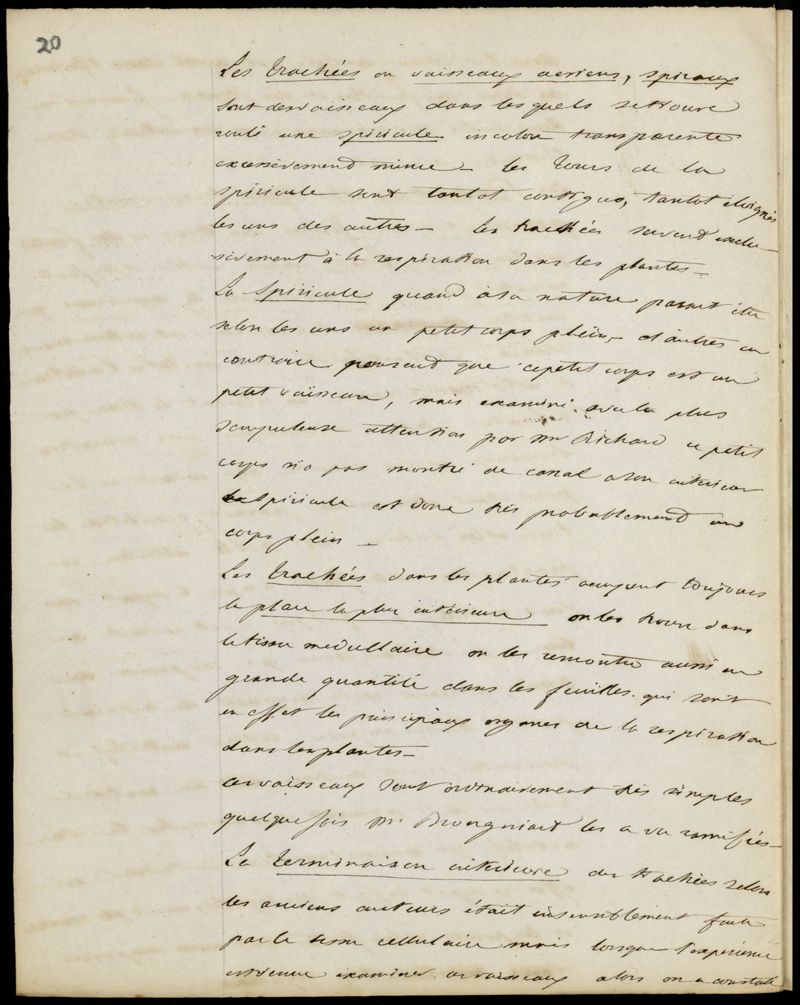 20
Les trachées ou vaisseaux aeriens, spiraux
sont des vaisseaux dans lesquels se trouve
roulé une spiricule incolore transparente
excessivement mince - les tours de la
spiricule sont tantot contigus, tantot éloignés
les uns des autres - les trachées servent exclu-
sivement à la respiration dans les plantes -
La Spiricule quand à sa nature parait être
selon les uns un petit corps plein, d'autres au
contraire pensent que ce petit corps est un
petit vaisseau, mais examiné avec la plus
scrupuleuse attention par mr Richard ce petit
corps n'a pas montré de canal a son interieur
la Spiricule est donc très probablement un
corps plein -
Les trachées dans les plantes occupent toujours
la place la plus intérieure on les trouve dans
le tissu medullaire on les remontre aussi en
grande quantité dans les feuilles qui sont
en effet les principaux organes de la respiration
dans les plantes -
ces vaisseaux sont ordinairement très simples
quelquefois mr. Brongniart les a vu ramifiés -
La terminaison intérieure des trachées selon
les anciens auteurs était insensiblement faite
par le tissu cellulaire mais lorsque l'expérience
est venue examiner ces vaisseaux alors on a constaté